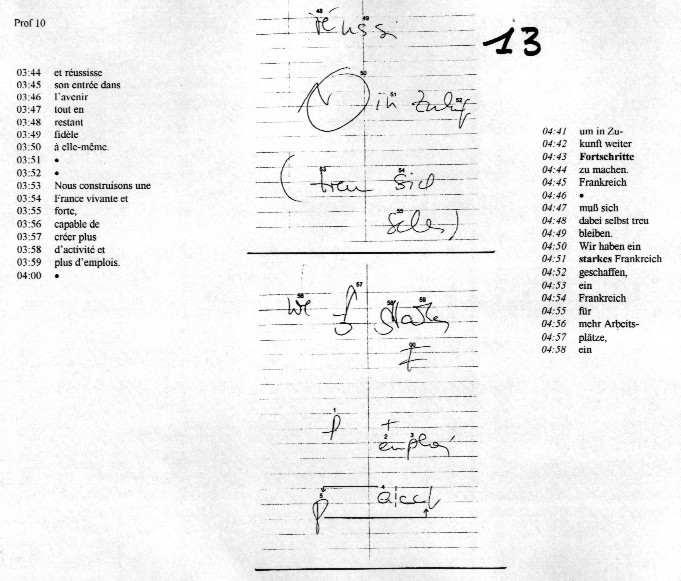 Prof 10
13
03:44 et réussisse
03:45 son entrée dans
03:46 l'avenir
03:47 tout en
03:48 restant
03:49 fidèle
03:50 à elle-même.
03:51 •
03:52 •
03:53 Nous construisons une
03:54 France vivante et
03:55 forte,
03:56 capable de
03:57 créer plus
03:58 d'activité et
03:59 plus d'emplois.
04:00 •
48 49
réussi
50 51 52
in Zukf
53 54
(treu sich
55
selbs)
56 57 58 59
We
60
F
1
+
2 3
emploi
4
5
04:41 um in Zu-
04:42 kunft weiter
04:43 Fortschritte
04:44 zu machen.
04:45 Frankreich
04:46 •
04:47 muß sich
04:48 dabei selbst treu
04:49 bleiben.
04:50 Wir haben ein
04:51 starkes Frankreich
04:52 geschaffen,
04:53 ein
04:54 Frankreich
04:55 für
04:56 mehr Arbeits-
04:57 plätze,
04:58 ein